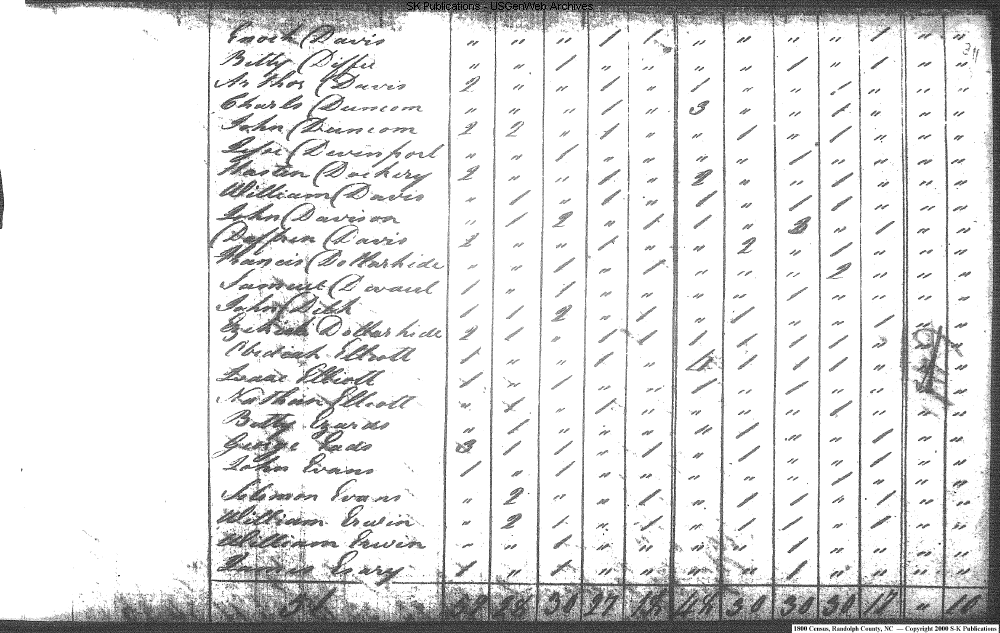 SK Publications - USGenWeb Archives
Enoch Davis " " " 1 1 " " " 1 " "
Betty Diffee " " 1 " " " " 1 " 1 " "
Arthor Davis 2 " " 1 " 1 " " 1 " " "
Charls Duncom " " " 1 " 3 " " 1 " " "
John Duncom 2 2 " 1 " " 1 " 1 " " "
Devenport " " 1 " " " " 1 " " " "
Dockery 2 " " 1 " 2 " " 1 " " "
William Davis " 1 " 1 " 1 " 1 1 " " "
John Davison " 1 2 " 1 1 " 3 " " "
Davis 2 " " 1 " " 2 " 1 " " "
Francis Dollarhide " " 1 " 1 " " " 2 " " "
Samuel 1 " 1 " " " " 1 " " " "
John 1 1 2 " 1 " 1 " " 1 " "
Dollarhide 2 1 " 1 1 1 1 1 1 "
Obediah Elliott 1 " " 1 " 4 1 1 1 "
Isaac Elliott 1 " 1 " " 1 " 1 " " "
Nathan Elliott " 1 " 1 " " " " 1 " " "
Betty " 1 " " " " 1 " " 1 " "
George Eads 3 1 1 " 1 " 1 " " 1 " "
John Evans 1 " 1 " " " " " 1 1 " "
Solomon Evans " 2 " " 1 " 1 1 " 1 " "
William Erwin " 2 1 " 1 " 1 1 " 1 " "
William Erwin " " 1 " " " " 1 " " " "
James Esary 1 " 1 " " " " 1 " " " "
28 30 27 18 48 30 30 30 17 " 10
1800 Census, Randolph County, NC — Copyright 2000 S-K Publications